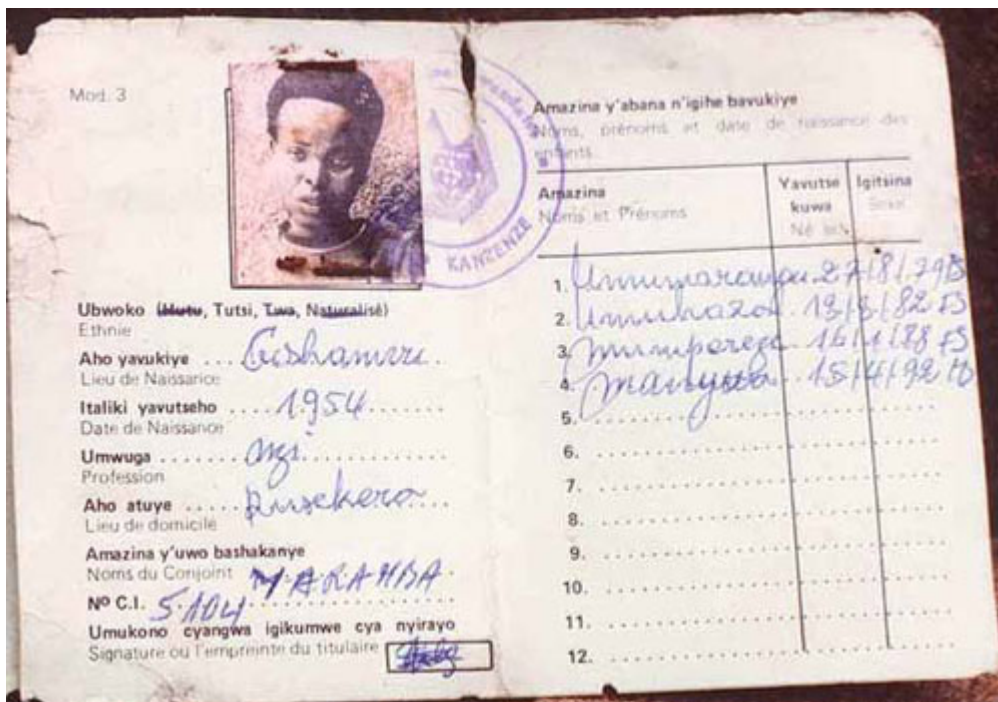 Mod. 3
KANZENZE
Ubwoko (Hutu, Tutsi, Twa, Naturalisé)
Ethnie
Aho yavukiye ....
Lieu de Naissance
Italiki yavutseho .... 1954
Date de Naissance
Umwuga ....
Profession
Aho atuye .... Rusekera
Lieu de domicile
Amazina y'uwo bashakanye
Noms du Conjoint
Nº C.I. 5.104
Umukono cyangwa igikumwe cya nyirayo
Signature ou l'empreinte du titulaire
Amazina y'abana n'igihe bavukiye
Noms, prénoms et date de naissance des
enfants
Amazina
Noms et Prénoms
Yavutse
kuwa
Né le
Igitsina
Sexe
1. 27/8/79
2. 
3. 16/1/88 FS
4. 15/4/92
5.
6.
7.
8.
9.
10.
11.
12.